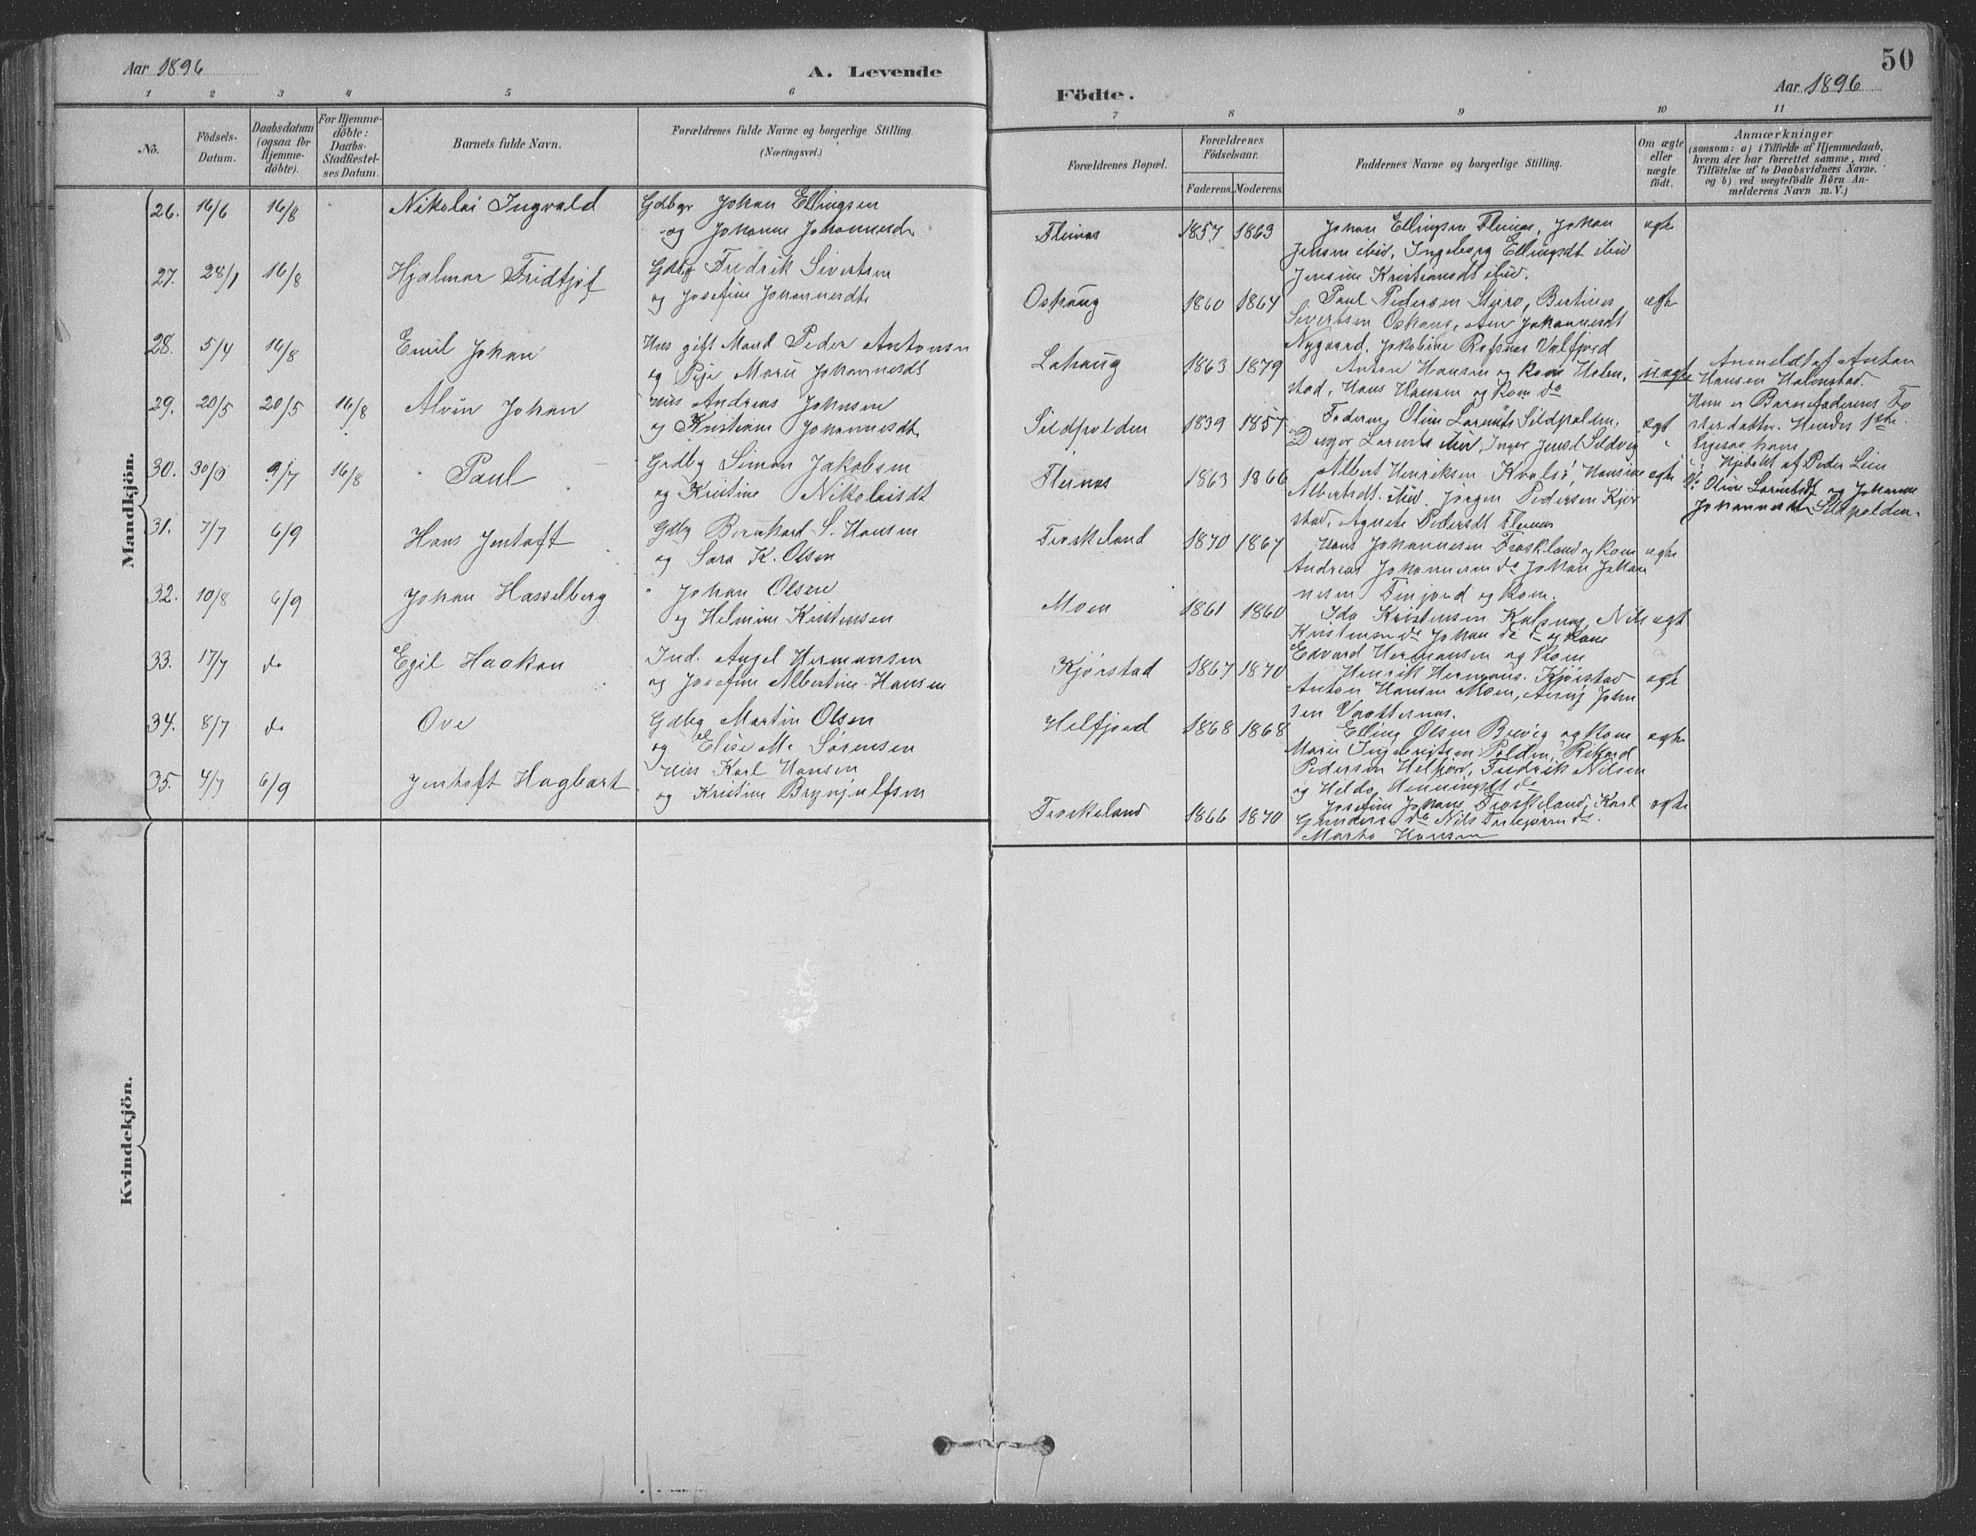 Aar 1896
A. Levende
1 2 3 4 5 6
No.
Födsels-
Datum.
Daabsdatum
(ogsaa för
Hjemme-
döbte).
For Hjemme-
döbte:
Daabs-
Stadfæstel-
ses Datum.
Barnets fulde Navn.
Forældrenes fulde Navne og borgerlige Stilling.
(Næringsvei.)
Mandkjön.
26. 16/6 16/8 Nikolai Ingvald Gdbgr Johan Ellingsen
og Johanne Johannesdt
27. 28/1 16/8 Hjalmar Fridtjof Gdbg Fredrik Sivertsen
og Josefine Johannesdtr
28. 5/4 16/8 Emil Johan Hus gift Mand Peder Antonsen
og Marie Johannesdt
29. 20/5 20/5 16/8 Alvin Johan Hus Andreas Johnsen
og Kristiane Johannesdt
30. 30/9 9/7 16/8 Paul Gdbg Simon Jakobsen
og Kristine Nikolaisdt
31. 7/7 6/9 Hans Jentoft Gdbg Bernhard S. Hansen
og Sara K. Olsen
32. 10/8 6/9 Johan Hasselberg " Johan Olsen
og Helmine Kristensen
33. 17/7 do Egil Haakon Ind. Angel Hermansen
og Josefine Albertine Hansen
34. 8/7 do Ove Gdbg Martin Olsen
og Elise M. Sørensen
35. 4/7 6/9 Jentoft Hagbart Hus Karl Hansen
og Kristine Brynjulfsen
Kvindekjön.
50
Födte.
Aar 1896
7 8 9 10 11
Forældrenes Bopæl.
Forældrenes
Födselsaar.
Faderens. Moderens.
Faddernes Navne og borgerlige Stilling.
Om ægte
eller
uægte
födt.
Anmærkninger
(saasom: a) i Tilfælde af Hjemmedaab,
hvem der har forrettet samme, med
Tilföielse af to Daabsvidners Navne,
og b) ved uægtefödte Börn An-
melderens Navn m. V.)
Flenas 1857 1863 Johan Ellingsen Flenas, Johan ægte
Jensen ibid, Ingeborg Ellingsdt ibid
Jensine Kristiansdt ibid.
Oshaug 1860 1864 Paul Pedersen Sturo, Bertines ægte
Sivertsen Oshaug, Ane Johannesdt
Nygaard, Jakobine Valfjord
Lahaug 1863 1879 Anton Hansen og Kone Holm- uægte Anmeldt af Anton
stad, Hans Hansen og Kone do Hansen Holmstad.
Hun er Barnefaderens Fo
Sildpolden 1839 1857 Faderen, Oline Lorentsdt Sildpolden, ægte sterdatter. Hendes 1ste
Lorentsdt ibid, Inger Jensd Seldvig Ligesaa hans
Flenas 1863 1866 Albert Henriksen Kvalsø, Hansine ægte Hjdøbt af Peder Lien
Albertsdt ibid. Jørgen Pedersen Kjør- Oline Lorentsdt og Johanne
stad, Agnete Pedersdt Flenas Johannesdt Sildpolden.
Froskeland 1870 1867 Hans Johannesen Froskeland og Kone ægte
Andreas Johannesen do Johan Johan
nesen Finjord og Kone.
Moen 1861 1860 Ida Kristensen Kalsnes, Nils ægte
Kristensen do Johan do og Kone
Edvard Hermansen og Kone
Kjørstad 1867 1870 Henrik Hermans. Kjørstad ægte
Anton Hansen Moen, John
sen Vaatternes.
Helfjord 1868 1868 Elling Olsen Brevig og Kone ægte
Marie Ingebrigtsen Polden, Rikard
Pedersen Helfjor, Fredrik Nilsen
og Hilda Henningsdt do
Froskeland 1866 1870 Josefine Johans. Froskeland, Karl ægte
Gundersen do Nils do.
Marta Hansen